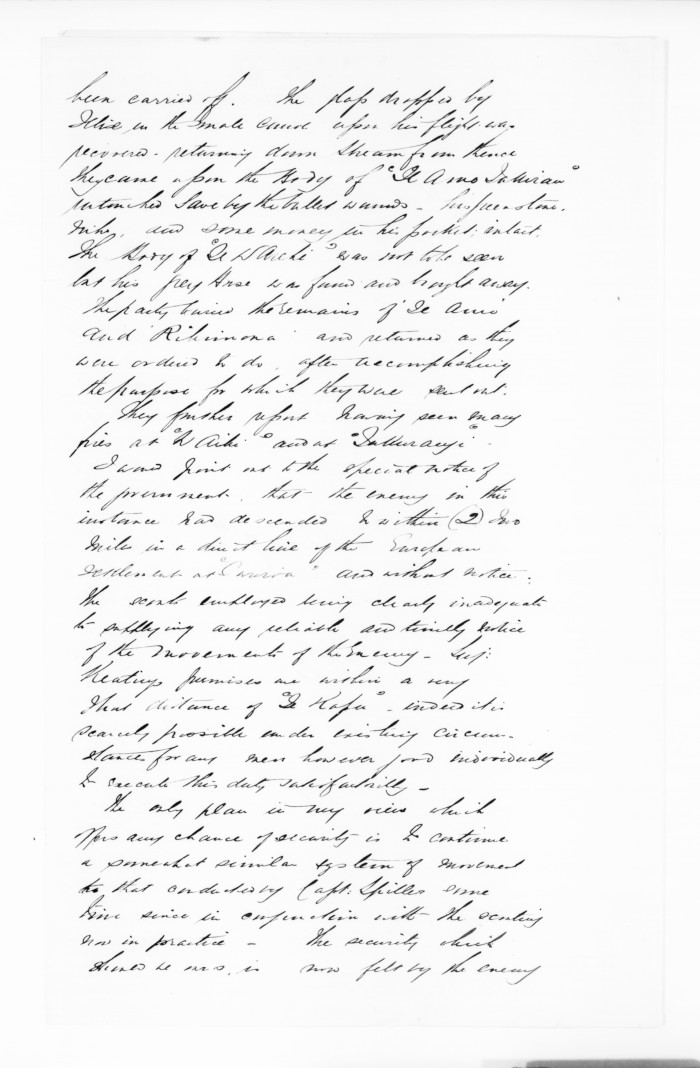 been carried off. The dropped by
in the small canoe upon his flight was
recovered - returning down stream from thence
they came upon the Body of "Te Amo
untouched save by the bullet wounds - his greenstone
and some money in his pocket, intact.
The Body of "Te Waihi" was not to be seen
but his grey Horse was found and brought away.
The party buried the remains of 'Te Amo'
and 'Rihimona' and returned as they
were ordered to do, after accomplishing
the purpose for which they were sent out.
They further report having seen many
fires at "Waihi" and at
I would point out to the special notice of
the government, that the enemy in this
instance had descended to within (2) two
miles in a direct line of the European
settlement at and without notice.
The scouts employed being clearly inadequate
to supplying any reliable and timely notice
of the movements of the Enemy -
Keatings premises are within a very
short distance of "Te Kapu" - indeed it is
scarcely possible under existing circum-
stances for any men however good individually
to execute this duty satisfactorily -
The only plan in my view which
offers any chance of security is to continue
a somewhat similar system of movement
to that conducted by Capt: Spiller some
time since in conjunction with the scouting
now in practice - The security which
should be ours, is now felt by the enemy